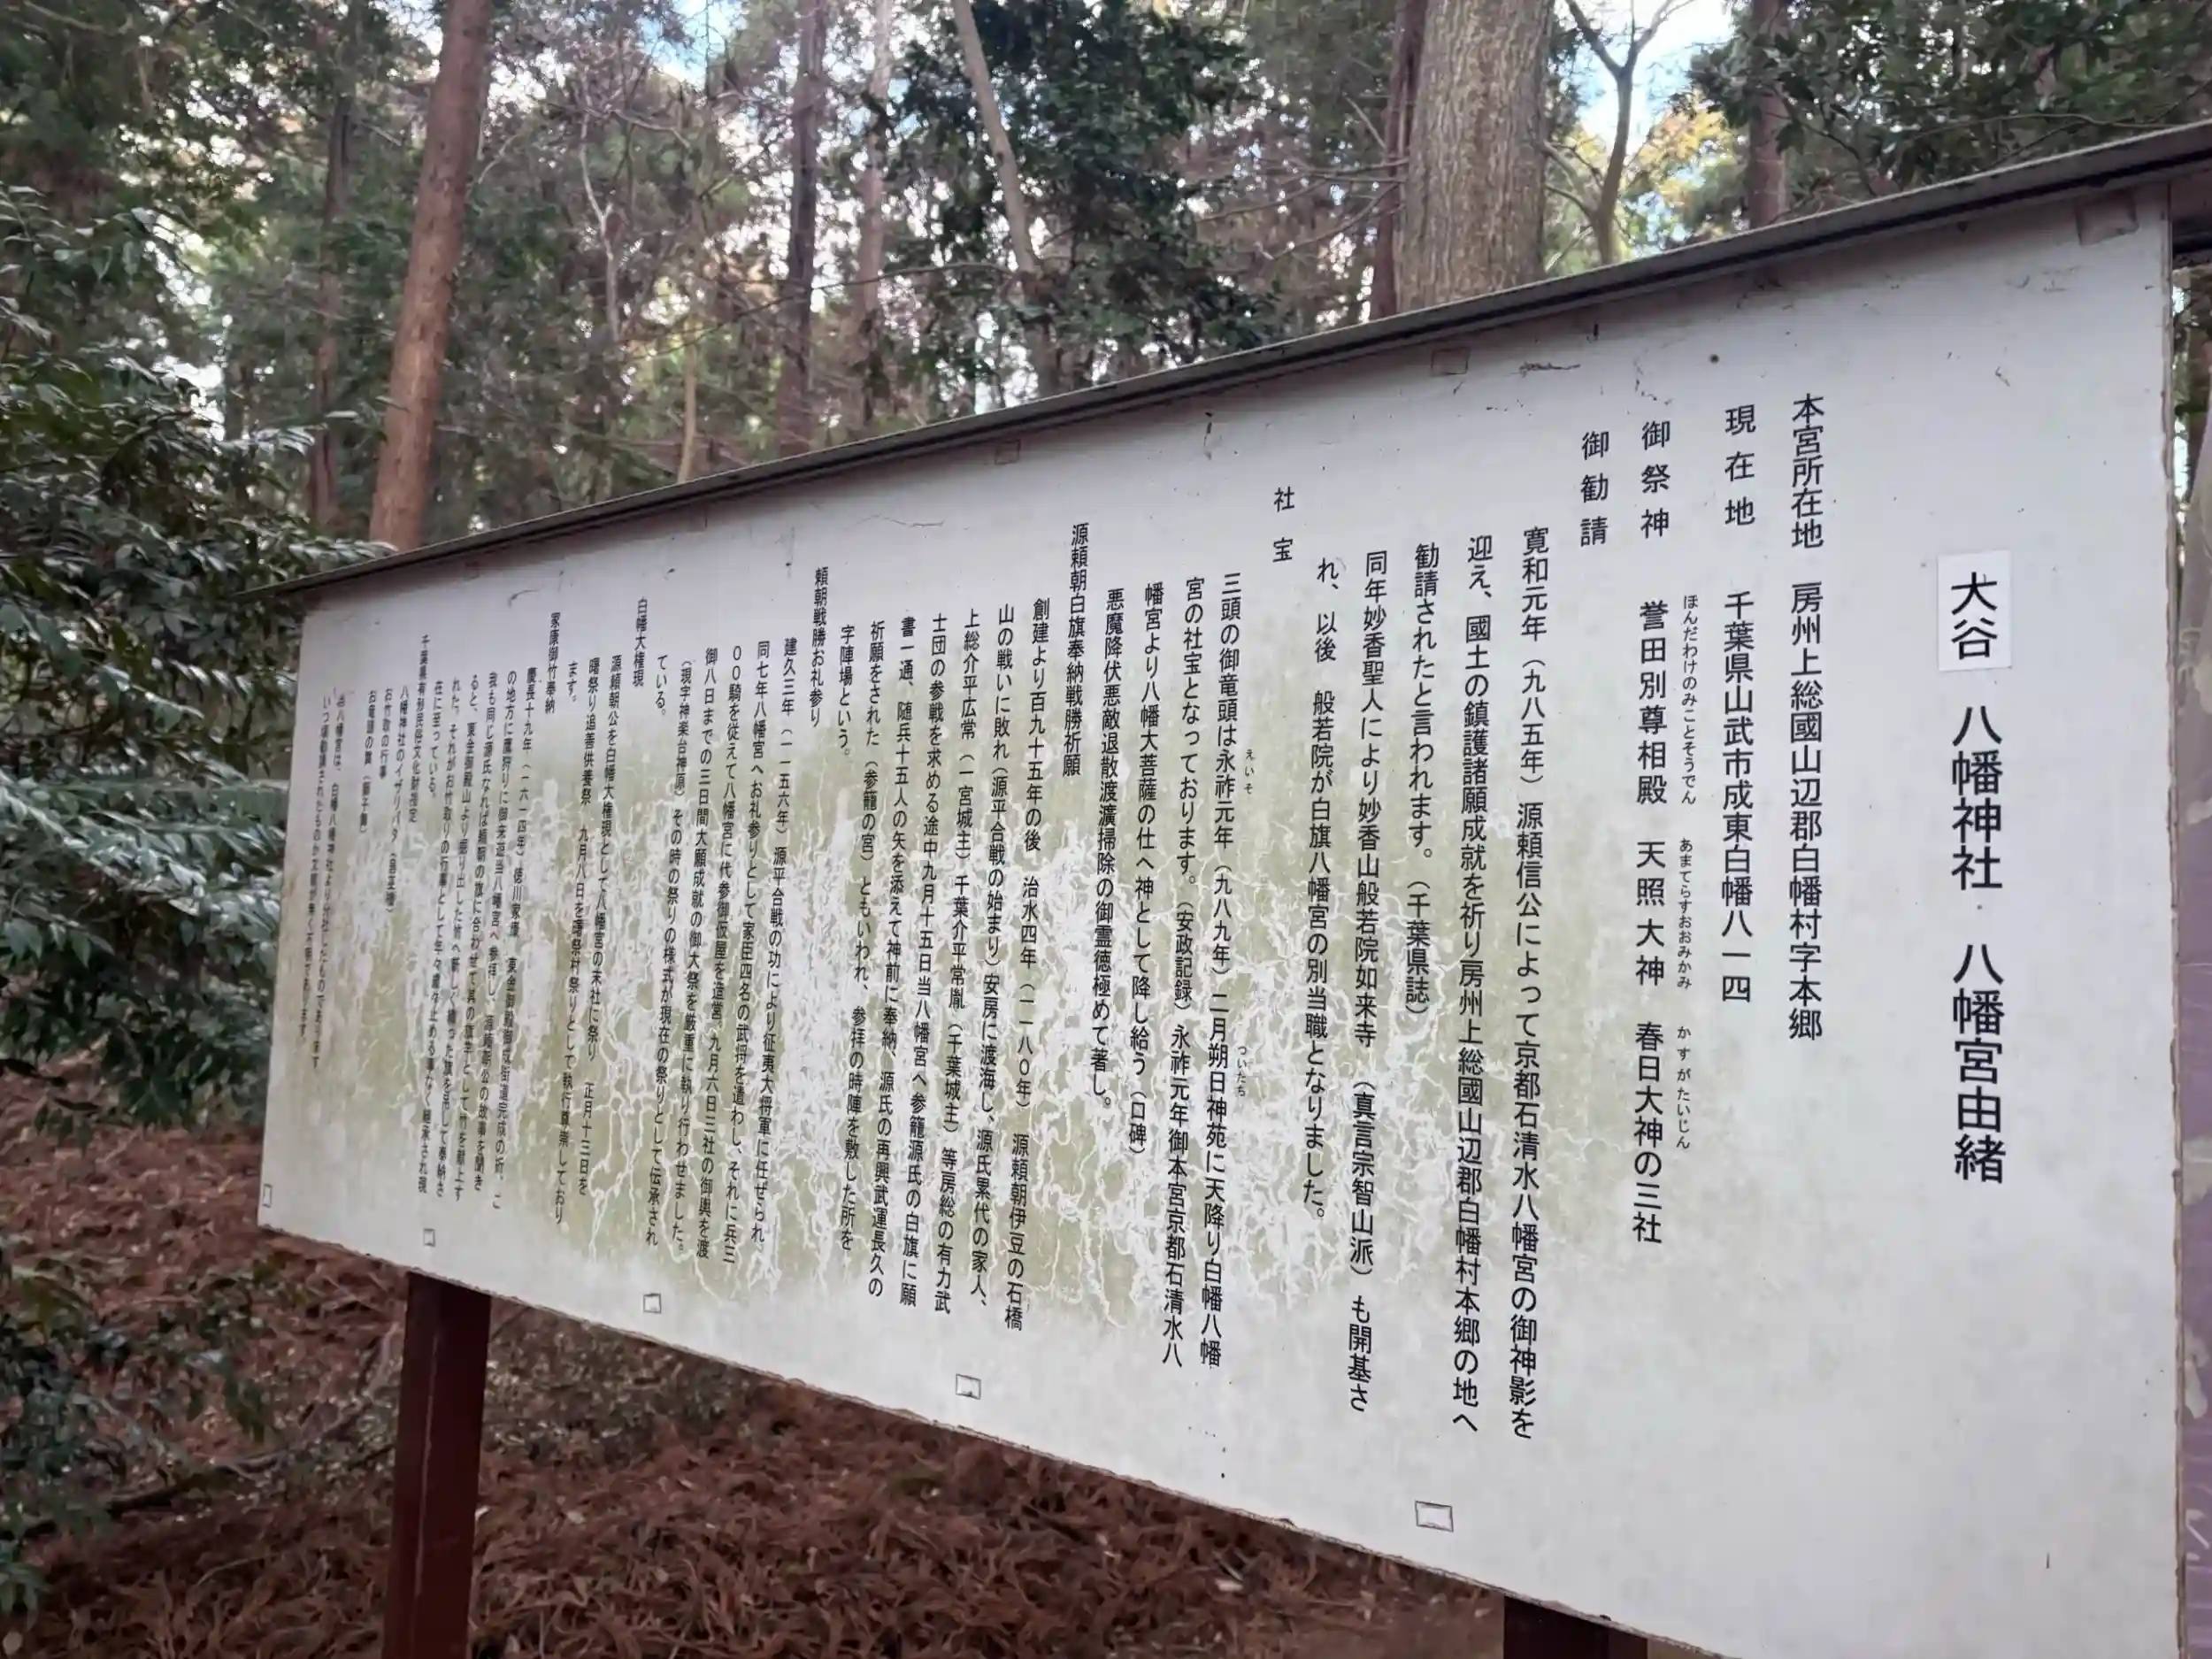 大谷 八幡神社・八幡宮由緒
本宮所在地 房州上総國山辺郡白幡村字本郷
現在地 千葉県山武市成東白幡八一四
ほんだわけのみことそうでん あまてらすおおみかみ かすがたいじん
御祭神 誉田別尊相殿 天照大神 春日大神の三社
御勧請
寛和元年(九八五年)源頼信公によって京都石清水八幡宮の御神影を
迎え、國土の鎮護諸願成就を祈り房州上総國山辺郡白幡村本郷の地へ
勧請されたと言われます。(千葉県誌)
同年妙香聖人により妙香山般若院如来寺 (真言宗智山派)も開基さ
れ、以後 般若院が白旗八幡宮の別当職となりました。
社宝
えいそ ついたち
三頭の御竜頭は永祚元年(九八九年)二月朔日神苑に天降り白幡八幡
宮の社宝となっております。(安政記録)永祚元年御本宮京都石清水八
幡宮より八幡大菩薩の仕へ神として降し給う(口碑)
悪魔降伏悪敵退散渡濱掃除の御霊徳極めて著し。
源頼朝白旗奉納戦勝祈願
創建より百九十五年の後 治水四年(一一八〇年) 源頼朝伊豆の石橋
山の戦いに敗れ(源平合戦の始まり)安房に渡海し、源氏累代の家人、
上総介平広常(一宮城主)千葉介平常胤(千葉城主)等房総の有力武
士団の参戦を求める途中九月十五日当八幡宮へ参籠源氏の白旗に願
書一通、随兵十五人の矢を添えて神前に奉納、源氏の再興武運長久の
祈願をされた(参籠の宮)ともいわれ、参拝の時陣を敷した所を
字陣場という。
頼朝戦勝お礼参り
建久三年(一一五六年)源平合戦の功により征夷大将軍に任ぜられ、
同七年八幡宮へお礼参りとして家臣四名の武将を遣わし、それに兵三
〇〇騎を従えて八幡宮に代参御仮屋を造営、九月六日三社の御輿を渡
御八日までの三日間大願成就の御大祭を厳重に執り行わせました。
(現字神楽台神原)その時の祭りの様式が現在の祭りとして伝承され
ている。
白幡大権現
源頼朝公を白幡大権現として八幡宮の末社に祭り 正月十三日を
曙祭り追善供養祭 九月八日を曙祭村祭りとして執行尊崇しており
ます。
家康御竹奉納
慶長十九年(一六一四年)徳川家康 、東金御殿御成街道完成の折、こ
の地方に鷹狩りに御来遊当八幡宮へ参拝し、源頼朝公の故事を聞き
我も同じ源氏なれば頼朝の旗に合わせて其の旗竿として竹を献上す
ると、東金御殿山より掘り出した竹へ新しく織った旗を吊して奉納さ
れた。それがお竹取りの行事として年々歳々止める事なく継承され現
在に至っている。
千葉県有形民俗文化財指定
八幡神社のイザリバタ
お竹取の行事
お竜頭の舞(獅子舞)
八幡宮は、白幡八幡神社より分社したものであります